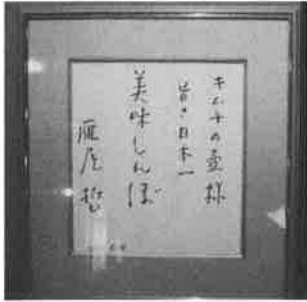 キムチの壷様
旨さ日本一
美味しんぼ
雁屋哲